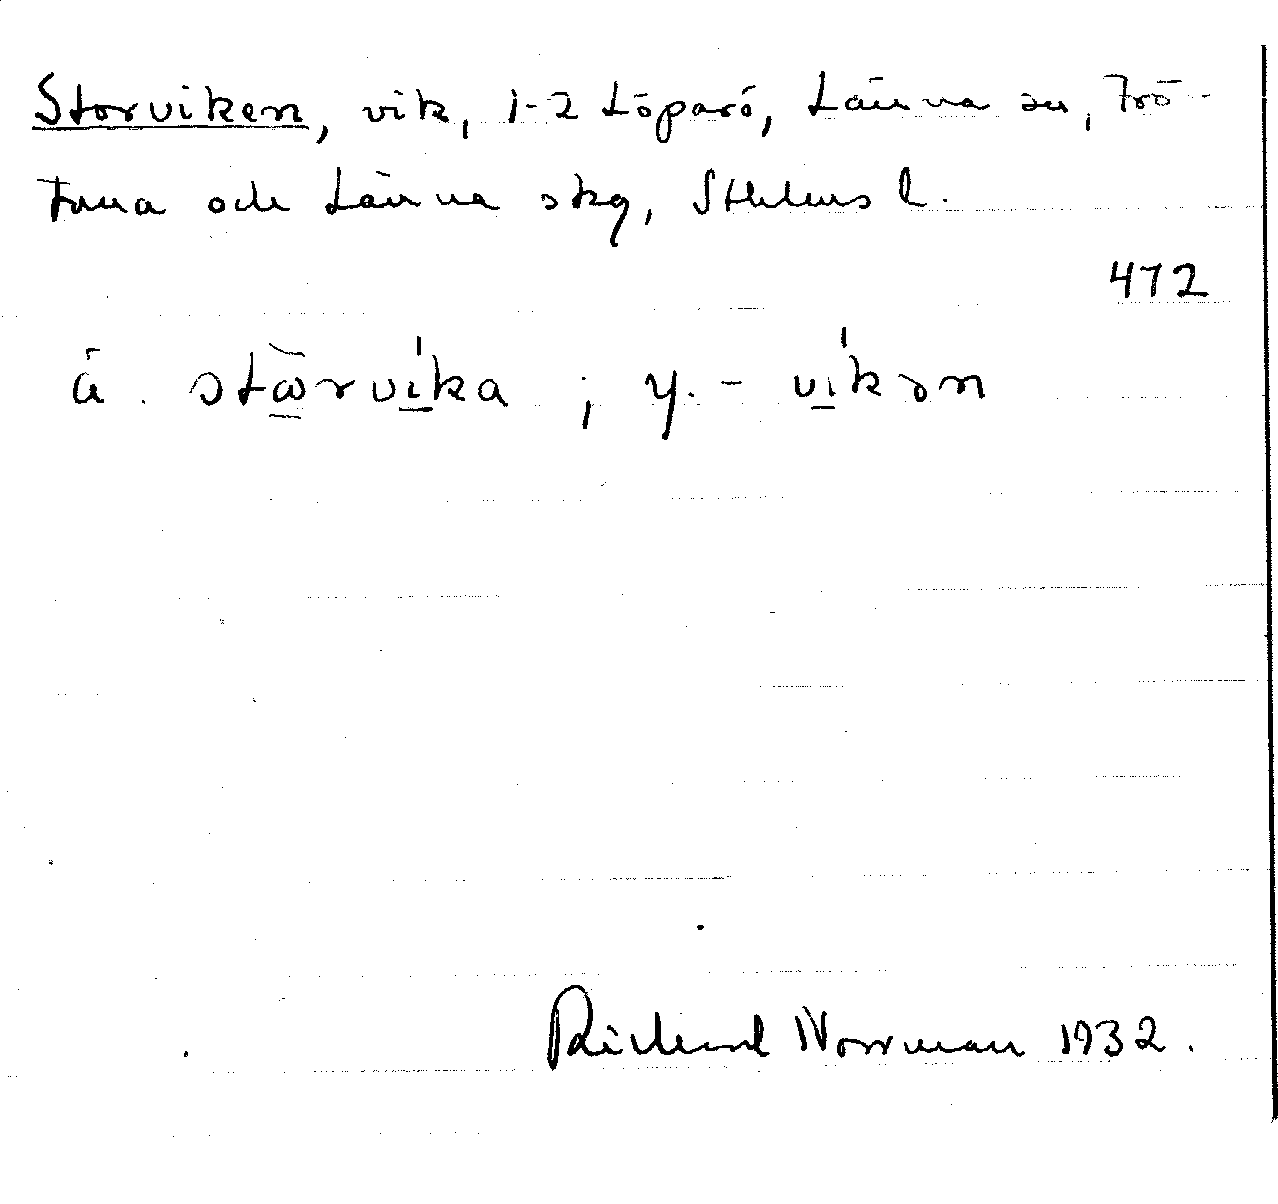 Storviken, vik, 1-2 Löparö, Länna sn, Frö-
tuna och Länna skg, Sthlms l.
472
ä. stωrvika ; y. - vikən
Richard Norrman 1932.